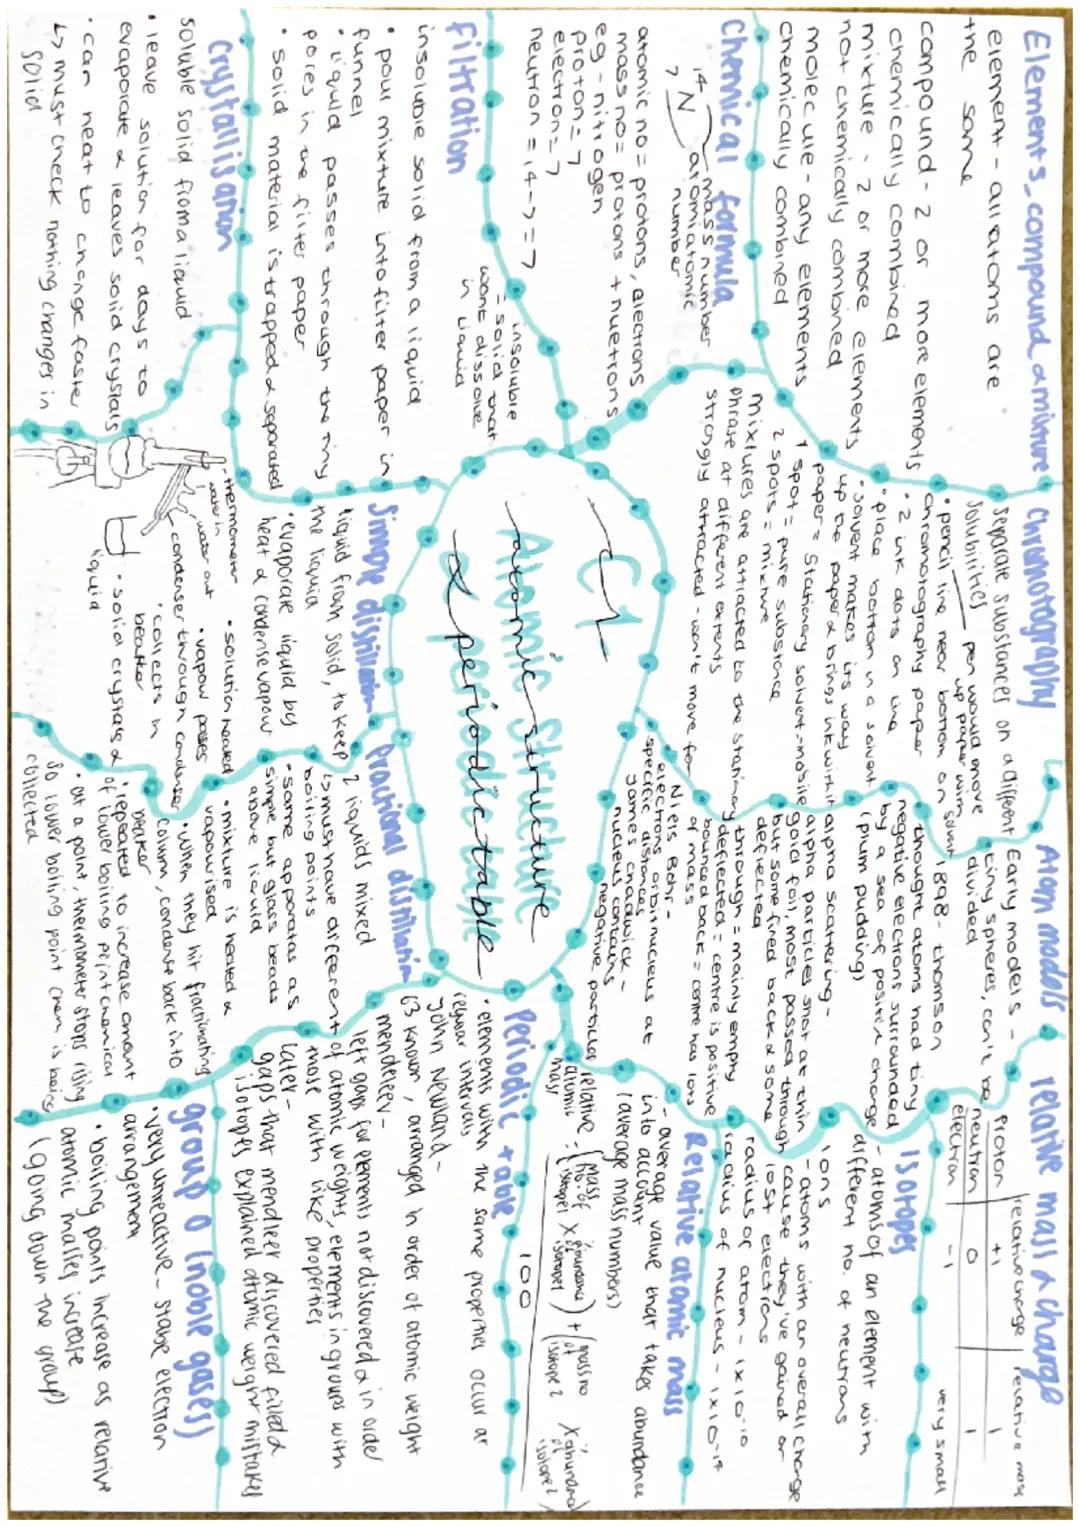 C1
Atomic Structure
& periodic table
Elements, compound & mixture
element - all atoms are
the same
compound - 2 or more elements
chemically combined
mixture - 2 or more elements
not chemically combined
molecule - any elements
chemically combined
Chemical formula
14 N mass number
7 atomic
number
atomic no = protons, electrons
mass no = protons + nuetrons
eg - nitrogen
proton = 7
electron = 7
neutron = 14 - 7 = 7
Filtration
insoluble
= solid that
wont dissolve
in liquid
insoluble solid from a liquid
• pour mixture into filter paper in
funnel
• liquid passes through the tiny
pores in the filter paper
• solid material is trapped & separated
Crystallisation
soluble solid from a liquid
• leave solution for days to
evaporate & leaves solid crystals
• can heat to change faster
↳ must check nothing changes in
solid
Chromotography
separate substances on a different
solubilities
pen would move
up paper with
solvent
• pencil line near bottom on
chromotography paper
• 2 ink dots on line
• place bottom in a solvent
• solvent makes its way
up the paper & brings ink with it
paper = stationary solvent - mobile
1 spot = pure substance
2 spots = mixture
mixtures are attracted to the stationary
phrase at different extents
strongly attracted - won't move far
Simple distillation
liquid from solid, to keep
the liquid
• evaporate liquid by
heat & condense vapour
thermometer
water out
water in
condenser
liquid
• solution heated
• vapour passes
through condenser
• collects in
beaker
• solid crystals
Fractional distillation
2 liquids mixed
↳ must have different
boiling points
• some apparatus as
simple but glass beads
above liquid
• mixture is heated &
vapourised
• when they hit fractionating
column, condense back into
beaker
• repeated to increase amount
of lower boiling point chemical
• at a point, thermometer stops rising
so lower boiling point chem. is being
collected
Atom models
Early models -
tiny spheres, can't be
divided
1898 - thomson
thought atoms had tiny
negative electrons surrounded
by a sea of positive charge
(plum pudding)
alpha scattering -
alpha particles shot at thin
gold foil, most passed through
but some fired back & some
deflected
through = mainly empty
deflected = centre is positive
bounced back = centre has lots
of mass
Niels Bohr -
electrons orbit nucleus at
specific distances
James chadwick -
nucleus contains
negative particles
relative mass & charge
relative charge relative mass
proton +1 1
neutron 0 1
electron -1 very small
Isotopes
- atoms of an element with
different no. of neutrons
Ions
- atoms with an overall charge
cause they've gained or
lost electrons
radius of atom - 1x10-10
radius of nucleus - 1x10-14
Relative atomic mass
- average value that takes abundance
into account
(average mass numbers)
relative
atomic
mass
= (mass no. of isotope 1 x % abundance of isotope 1) + (mass no of isotope 2 x % abundance of isotope 2)
100
Periodic table
• elements with the same properties occur at
regular intervals
John Newland -
63 known, arranged in order of atomic weight
mendelev -
left gaps for elements not discovered & in order
of atomic weights, elements in groups with
those with like properties
later -
gaps that mendleer discovered filled &
isotopes explained atomic weight mistakes
group 0 (noble gases)
• very unreactive - stable electron
arrangement
• boiling points increase as relative
atomic masses increase
(going down the group)